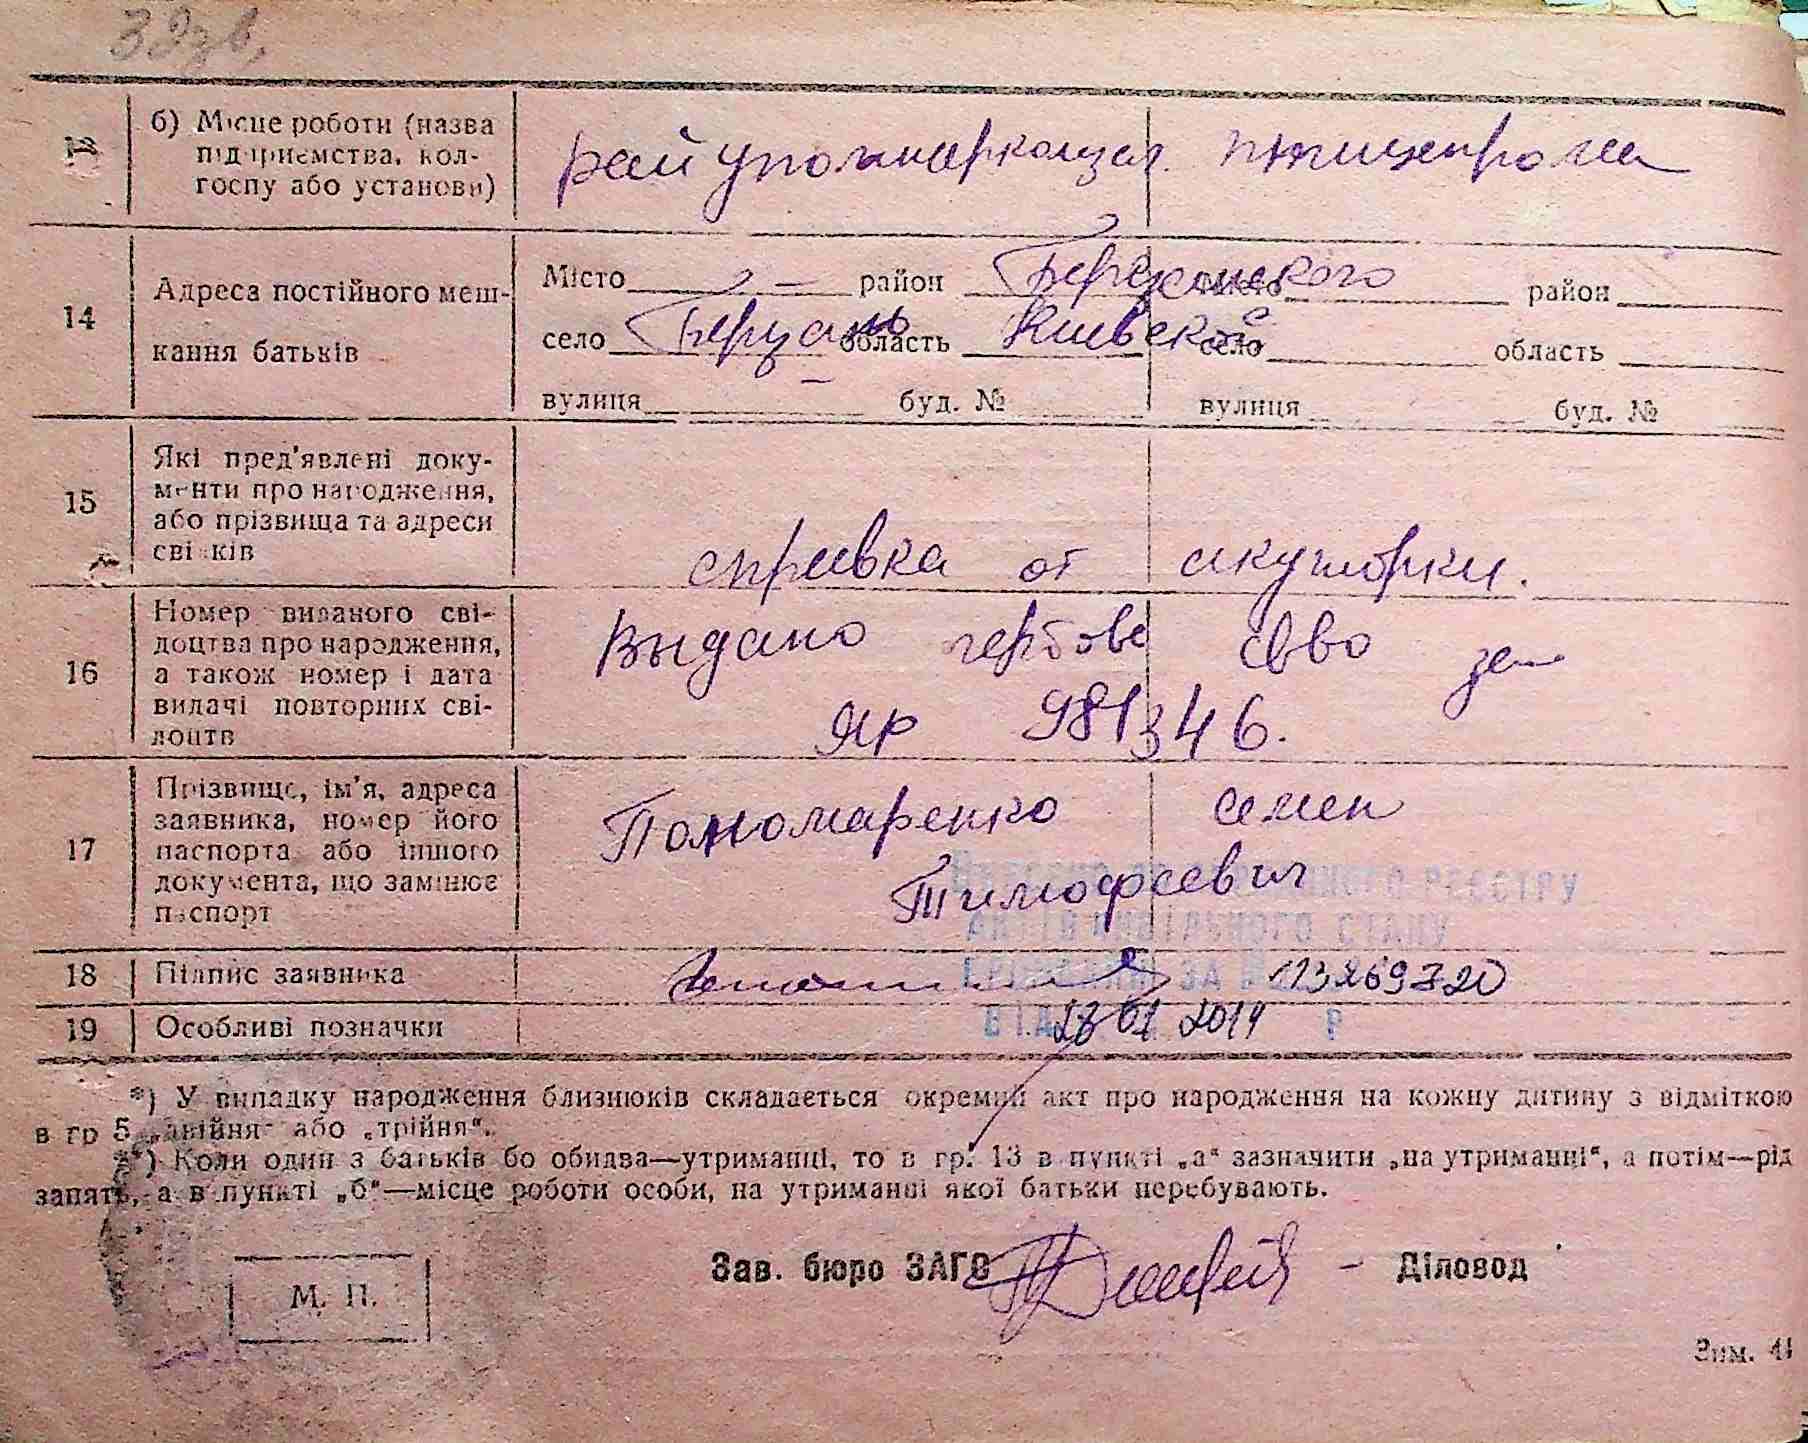 39зв.
13 б) Місце роботи (назва
підприємства, кол-
госпу або установи)
рай уполнаркомзаг. птицепрома
14 Адреса постійного меш-
кання батьків
Місто — район Березанского Місто район
село Березань область Киевской село область
вулиця — буд. № вулиця буд. №
15 Які пред'явлені доку-
менти про народження,
або прізвища та адреси
свідків
справка от акушорки.
16 Номер виданого сві-
доцтва про народження,
а також номер і дата
видачі повторних сві-
доцтв
Выдано гербове свво за
ЯР 981346.
17 Прізвище, ім'я, адреса
заявника, номер його
паспорта або іншого
документа, що замінює
паспорт
Пономаренко Семен
Тимофеевич
РЕЄСТРУ
АКТІВ ЦИВІЛЬНОГО СТАНУ
ГРОМАДЯН ЗА № 113269720
18 Підпис заявника
ВІД 28 01 2014 Р
19 Особливі позначки
*) У випадку народження близнюків складається окремий акт про народження на кожну дитину з відміткою
в гр 5 „двійня“ або „трійня“.
**) Коли один з батьків бо обидва—утриманці, то в гр. 13 в пункті „а“ зазначити „на утриманні“, а потім—рід
занять, а в пункті „б“—місце роботи особи, на утриманні якої батьки перебувають.
М. П.
Зав. бюро ЗАГС — Діловод
Зам. 41